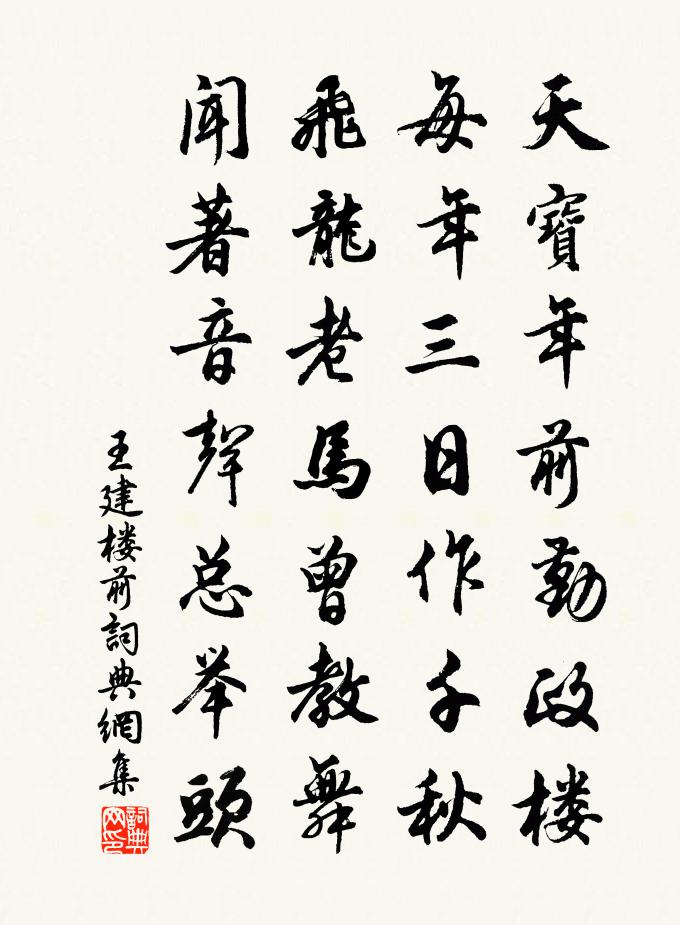 天寶年前勤政楼
每年三日作千秋
飛龍老馬曾教舞
聞著音聲总举頭
王建楼前詞典網集
詞典网印